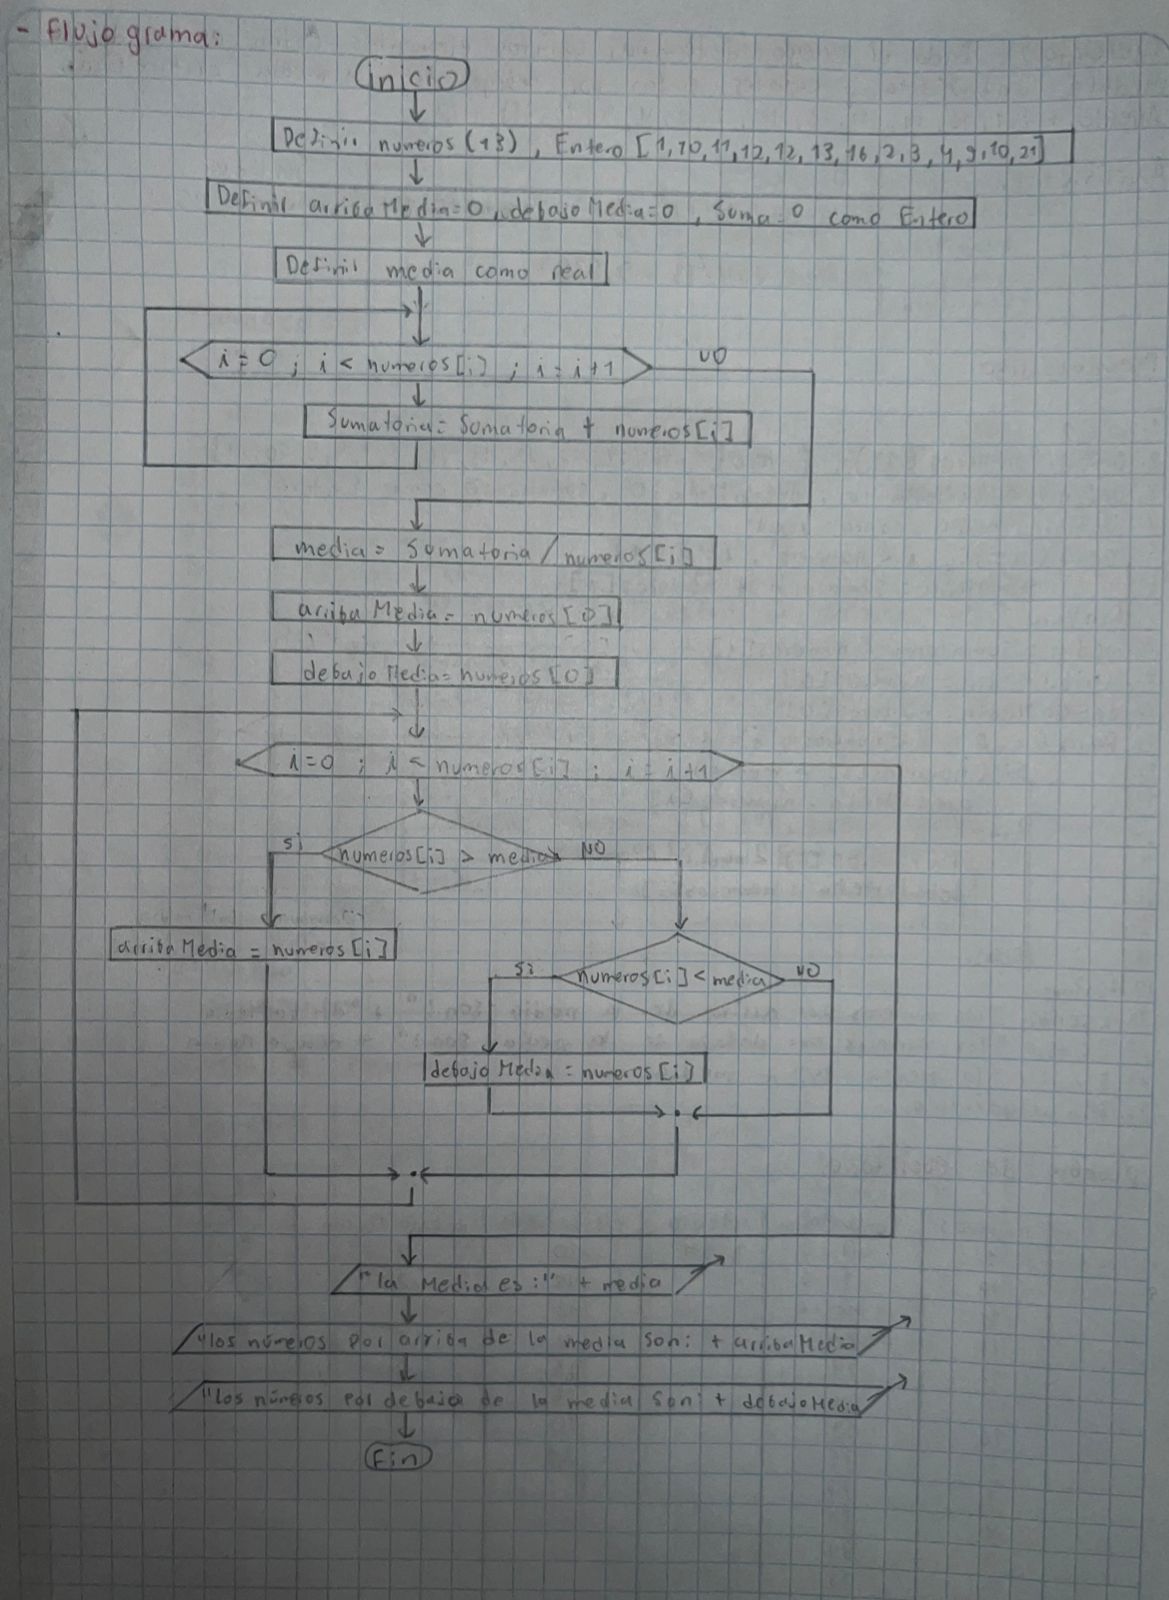 - Flujo grama:
inicio
Definir numeros (13), Entero [1,10,11,12,12,13,16,2,3,4,9,10,21]
Definir arriba Media=0, debajo Media=0, Suma=0 como Entero
Definir media como real
i = 0 ; i < numeros[i] ; i = i+1
NO
Sumatoria = Sumatoria + numeros[i]
media = Sumatoria / numeros[i]
arriba Media = numeros[0]
debajo Media = numeros[0]
i=0 ; i < numeros[i] ; i = i+1
si
numeros[i] > media
NO
arriba Media = numeros[i]
Si
numeros[i] < media
NO
debajo Media = numeros[i]
"la Media es:" + media
"los números por arriba de la media son: + arriba Media
"Los números por debajo de la media son: + debajo Media
Fin